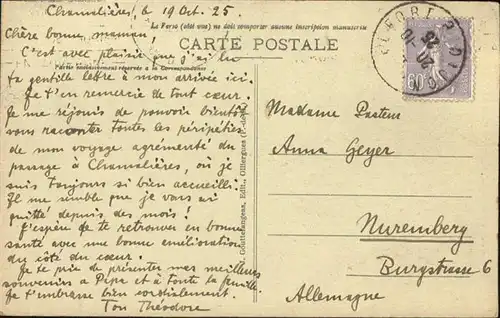 Chamalières, le 19 Oct. 25.
La Force (côté vue) ne doit comporter aucune inscription manuscrite
CARTE POSTALE
Partie exclusivement réservée à la Correspondance
Chère bonne maman,
C'est avec plaisir que j'ai lu
ta gentille lettre à mon arrivée ici.
Je t'en remercie de tout cœur.
Je me réjouis de pouvoir bientôt
vous raconter toutes les péripéties
de mon voyage agrémenté du
passage à Chamalières, où je
suis toujours si bien accueilli.
Il me semble que je vous ai
quitté depuis des mois!
J'espère de te retrouver en bonne
santé avec une bonne amélioration
du côté du cœur.
Je te prie de présenter mes meilleurs
souvenirs à Papa et à toute la famille.
Je t'embrasse bien cordialement.
Ton Théodore
Gouttefangeas, Edit., Olliergues (P.-de-D.)
20-10
25
60
Madame Pasteur
Anna Geyer
Nuremberg
Burgstrasse 6
Allemagne